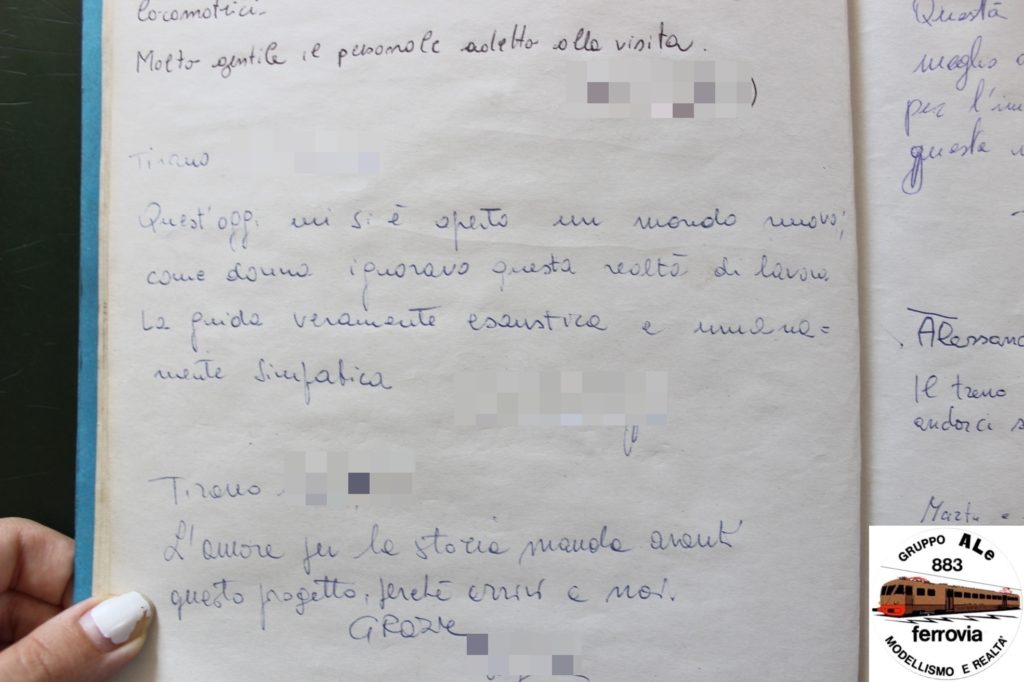 locomotrici.
Molto gentile il personale addetto alla visita.
)
Tirano
Quest'oggi mi si è aperto un mondo nuovo;
come donna ignoravo questa realtà di lavoro.
La guida veramente esaustica e umana=
mente simpatica
Tirano
L'amore per la storia manda avanti
questo progetto, perché arrivi a noi.
GRAZIE
Questa
meglio
per l'
questa
Alessand
Il treno
andarci s
GRUPPO ALe
883
ferrovia
MODELLISMO E REALTA'